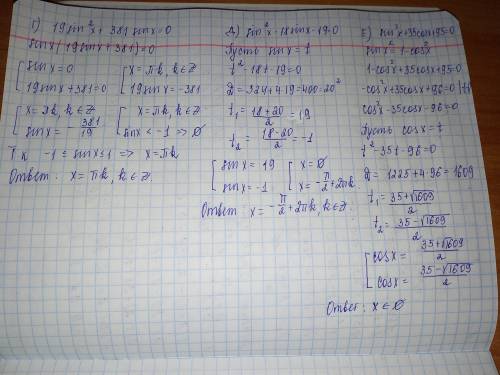 Г) 19sin²x + 381 sinx = 0
sinx(19sinx + 381) = 0
[ sinx = 0
19sinx + 381 = 0
[ x = πk, k∈Z
19sinx = -381
[ x = πk, k∈Z
sinx = - 381/19
[ x = πk, k∈Z
sinx < -1 => ∅
Т.к -1 ≤ sinx ≤ 1 => x = πk
Ответ: x = πk, k∈Z.
Д) sin²x - 18sinx - 19 = 0
Пусть sinx = t
t² - 18t - 19 = 0
D = 324 + 4·19 = 400 = 20²
t₁ = (18+20)/2 = 19
t₂ = (18-20)/2 = -1
[ sinx = 19
sinx = -1
[ x = ∅
x = -π/2 + 2πk
Ответ: x = -π/2 + 2πk, k∈Z.
Е) sin²x + 35cosx + 95 = 0
sinx² = 1 - cos²
1 - cos²x + 35cosx + 95 = 0
-cos²x + 35cosx + 96 = 0
cos²x - 35cosx - 96 = 0
Пусть cosx = t
t² - 35t - 96 = 0
D = 1225 + 4·96 = 1609
t₁ = (35+√1609)/2
t₂ = (35-√1609)/2
[ cosx = (35+√1609)/2
cosx = (35-√1609)/2
Ответ: x∈∅